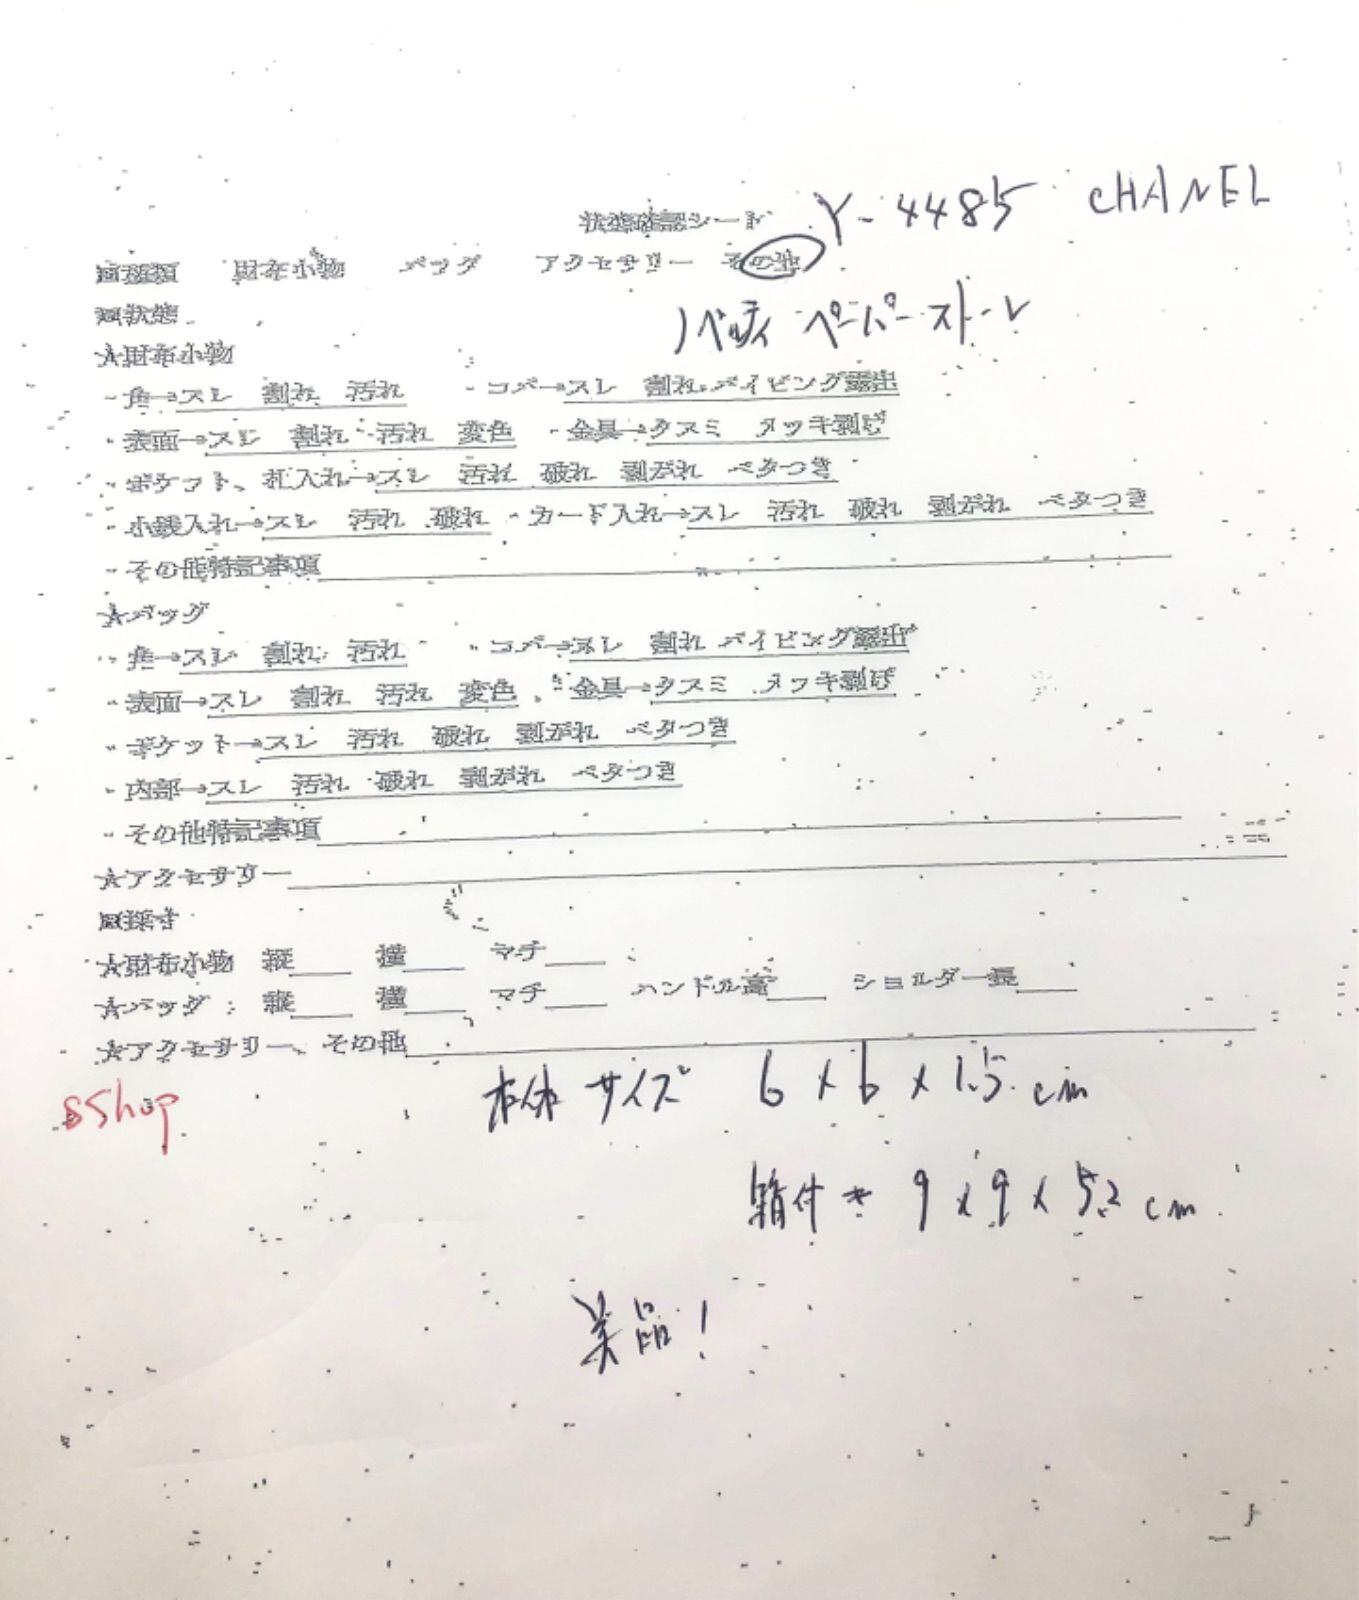 状態確認シート Y-4485 CHANEL
□種類 財布小物 バッグ アクセサリー その他
ノベルティ ペーパーストーレ
□状態
★財布小物
・角→スレ 割れ 汚れ ・コバ→スレ 割れ パイピング露出
・表面→スレ 割れ 汚れ 変色 ・金具→クスミ メッキ剥げ
・ポケット、札入れ→スレ 汚れ 破れ 剥がれ ベタつき
・小銭入れ→スレ 汚れ 破れ ・カード入れ→スレ 汚れ 破れ 剥がれ ベタつき
・その他特記事項
★バッグ
・角→スレ 割れ 汚れ ・コバ→スレ 割れ パイピング露出
・表面→スレ 割れ 汚れ 変色 ・金具→クスミ メッキ剥げ
・ポケット→スレ 汚れ 破れ 剥がれ ベタつき
・内部→スレ 汚れ 破れ 剥がれ ベタつき
・その他特記事項
★アクセサリー
□採寸
★財布小物 縦 横 マチ
★バッグ:縦 横 マチ ハンドル高 ショルダー長
★アクセサリー、その他
sShop
本体サイズ 6×6×1.5cm
箱付き 9×9×5.2cm
美品!